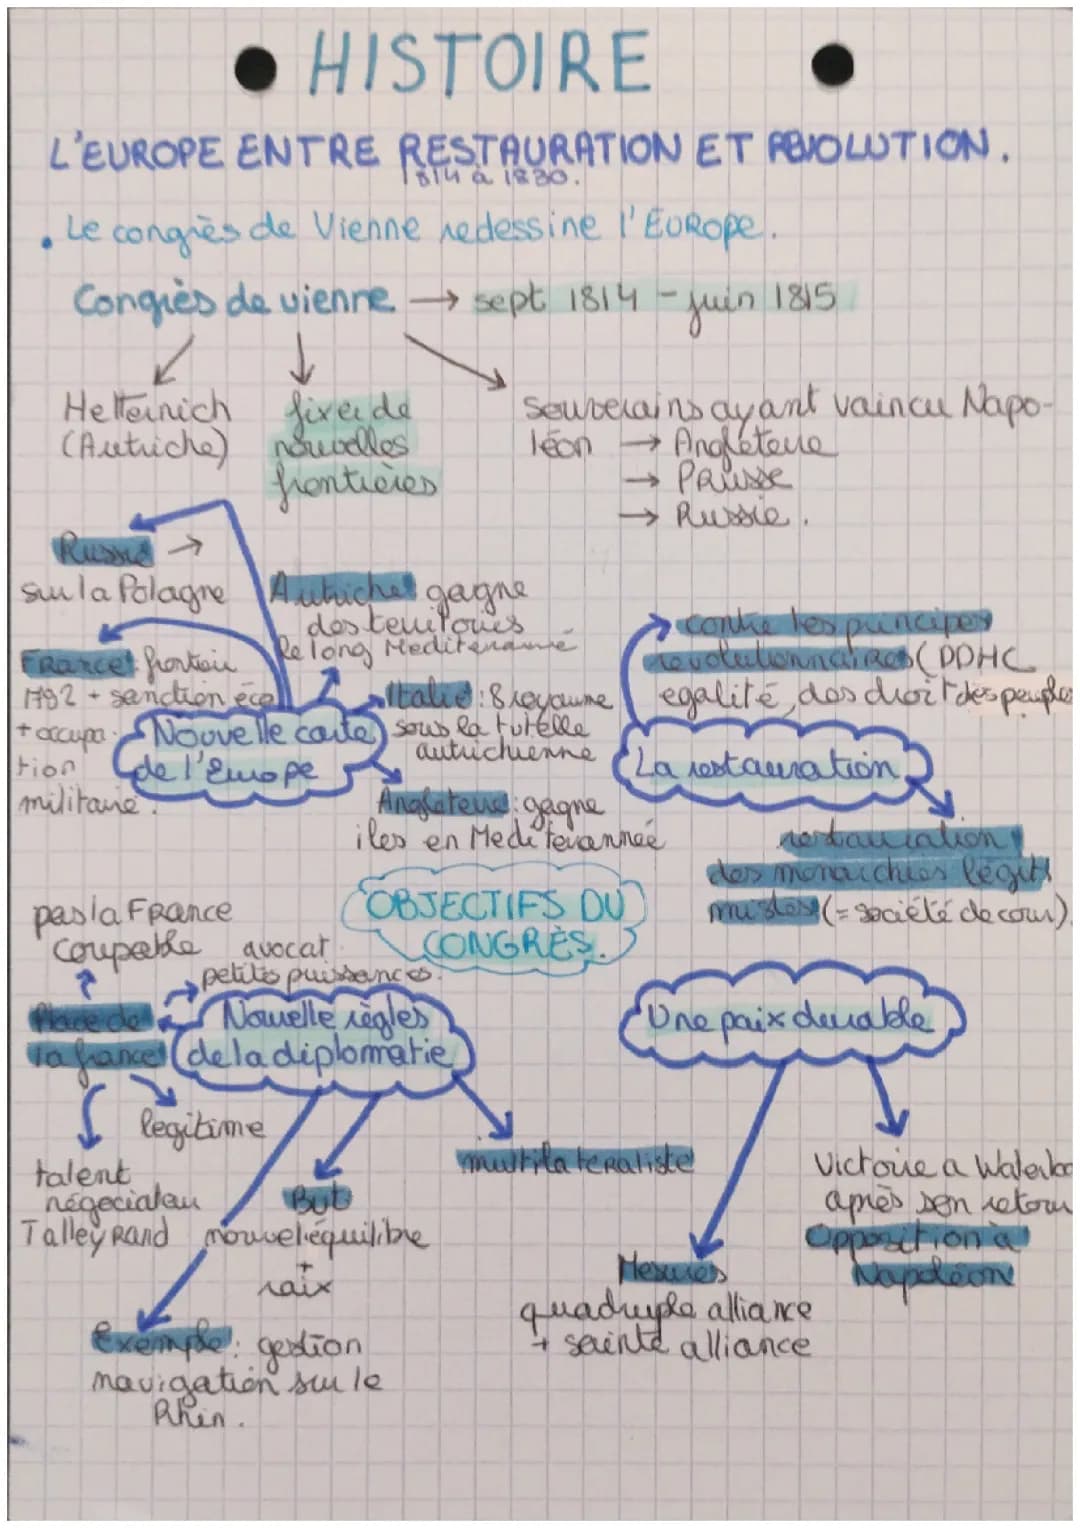 HISTOIRE
L'EUROPE ENTRE RESTAURATION ET REVOLUTION.
1814 à 1830.
• Le congrès de Vienne redessine l'EUROPE.
Congrès de vienne → sept 1814 - juin 1815
Metternich
(Autriche)
fixer de
nouvelles
frontières
souverains ayant vaincu Napo-
léon → Angleterre
→ PRusse
→ Russie.
Russie →
sur la Pologne
Autriche: gagne
des territoires
le long Mediterranné
France: frontièr
1792 + sanction éco
+ occupa-
tion
militaire.
Nouvelle carte
de l'Europe
Italie: 8 royaume
sous la tutelle
autrichienne
Angleterre: gagne
iles en Mediterrannée
contre les principes
revolutionnaires (DDHC
egalité, des droit des peuples
La restauration
restauration
des monarchies légiti
mistes (= société de cour)
OBJECTIFS DU
CONGRÈS.
pas la FRance
coupable
avocat
petites puissances.
Place de
la france
Nouvelle règles
de la diplomatie
legitime
talent
négociateur
TalleyRand
But
nouvel équilibre
+
paix
multilateraliste
Exemple: gestion
navigation sur le
Rhin.
Une paix durable
Mesures
quadruple alliance
+ sainte alliance
Victoire a Waterloo
après son retour
Opposition à
Napoléon